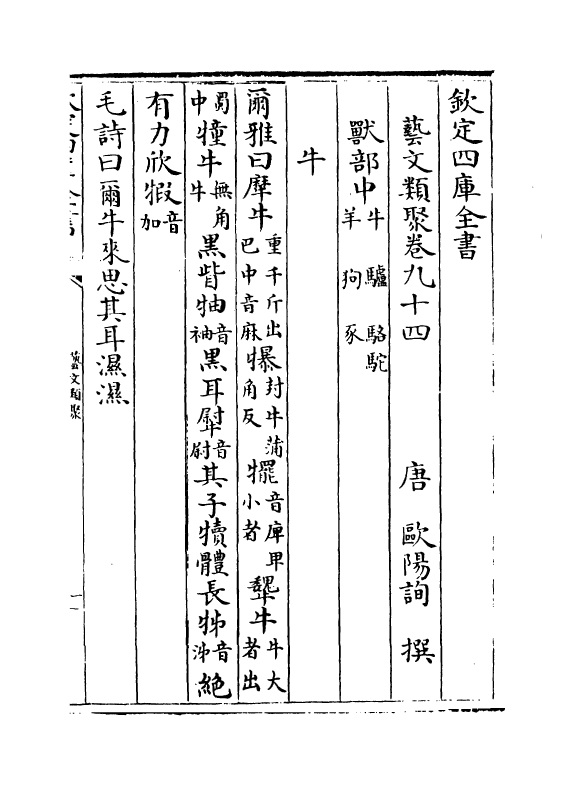 欽定四庫全書
藝文類聚卷九十四　唐　歐陽詢　撰
獸部中牛　驢　駱駝羊　狗　豕
牛
爾雅曰犘牛重千斤出巴中音麻犦封牛蒲角反犤音庳甲小者犩牛牛大者出
蜀中犝牛無角牛黑眥牰音袖黑耳犚音尉其子犢體長牬音沛絶
有力欣犌音加
毛詩曰爾牛來思其耳濕濕
藝文類聚
一